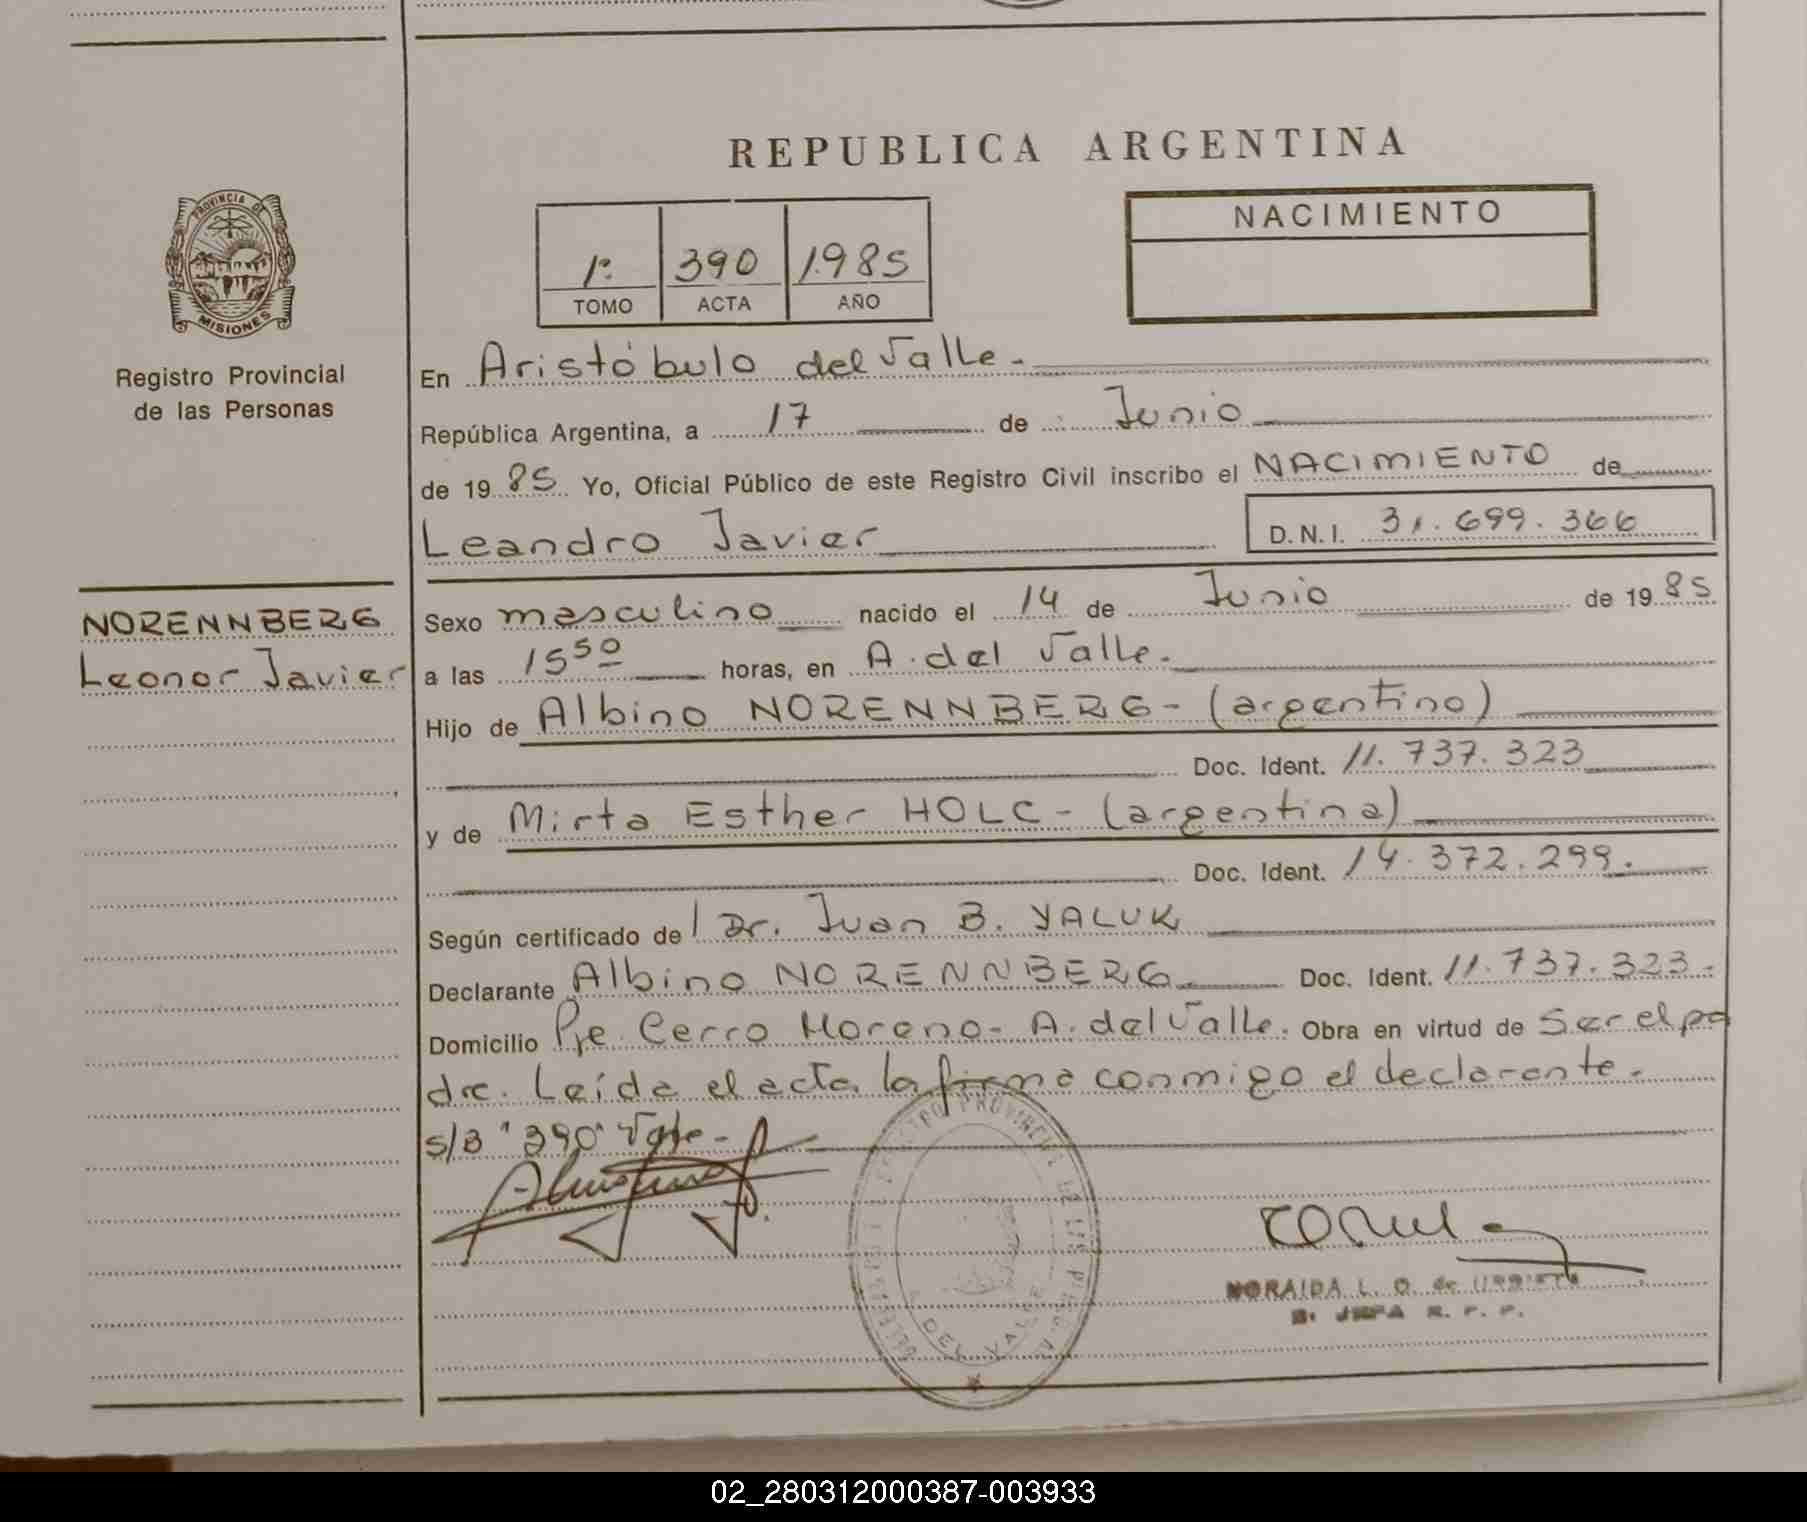 REPUBLICA ARGENTINA
PROVINCIA DE
MISIONES
Registro Provincial
de las Personas
NORENNBERG
Leonor Javier
1º. 390 1985
TOMO ACTA AÑO
NACIMIENTO
En Aristóbulo del Valle.
República Argentina, a 17 de Junio
de 1985 Yo, Oficial Público de este Registro Civil inscribo el NACIMIENTO de
Leandro Javier D.N.I. 31.699.366
Sexo masculino nacido el 14 de Junio de 1985
a las 15 50 horas, en A. del Valle.
Hijo de Albino NORENNBERG - (argentino)
Doc. Ident. 11.737.323
y de Mirta Esther HOLC - (argentina)
Doc. Ident. 14.372.299.
Según certificado de Dr. Juan B. YALUK
Declarante Albino NORENNBERG Doc. Ident. 11.737.323.
Domicilio Pje. Cerro Moreno - A. del Valle. Obra en virtud de Ser el pa
dre. Leída el acta la firma conmigo el declarante.
s/B "390" Vale.-
REGISTRO PROVINCIAL DE LAS PERSONAS
DEL VALLE
NORAIDA L. O. de URRIETA
JEFA R. P. P.
02_280312000387-003933